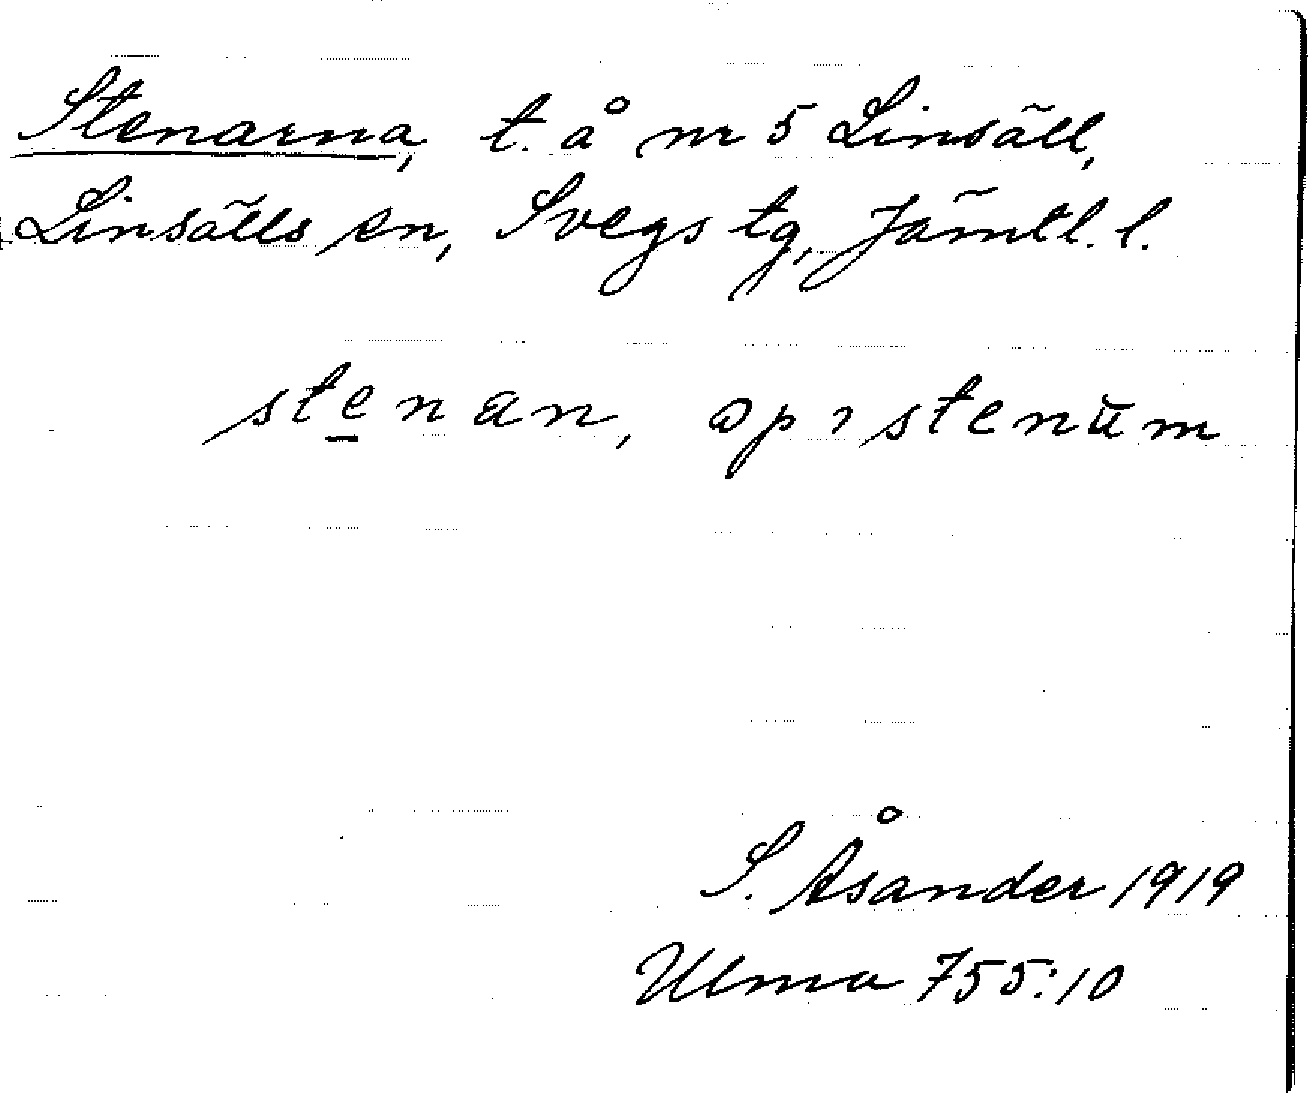 Stenarna, t. å nr 5 Linsäll,
Linsälls sn, Svegs tg, Jämtl. l.
stenan, stenum
S. Åsander 1919
Ulma 755:10